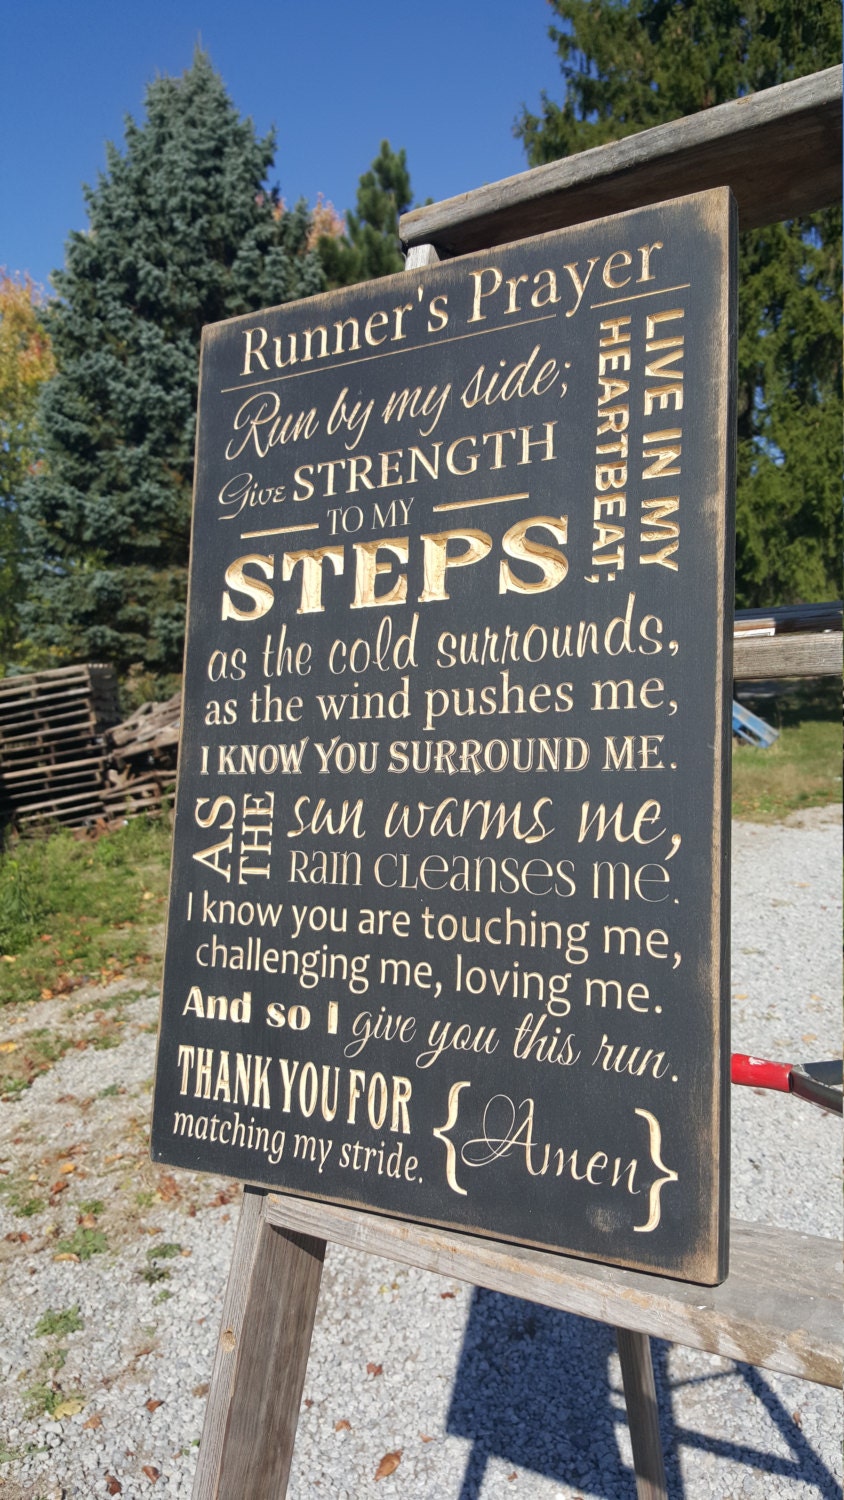 Runner's Prayer
Run by my side;
LIVE IN MY
HEARTBEAT;
Give STRENGTH
TO MY
STEPS
as the cold surrounds,
as the wind pushes me,
I KNOW YOU SURROUND ME.
AS
THE
sun warms me,
Rain cleanses me.
I know you are touching me,
challenging me, loving me.
And so I give you this run.
THANK YOU FOR
matching my stride.
{Amen}